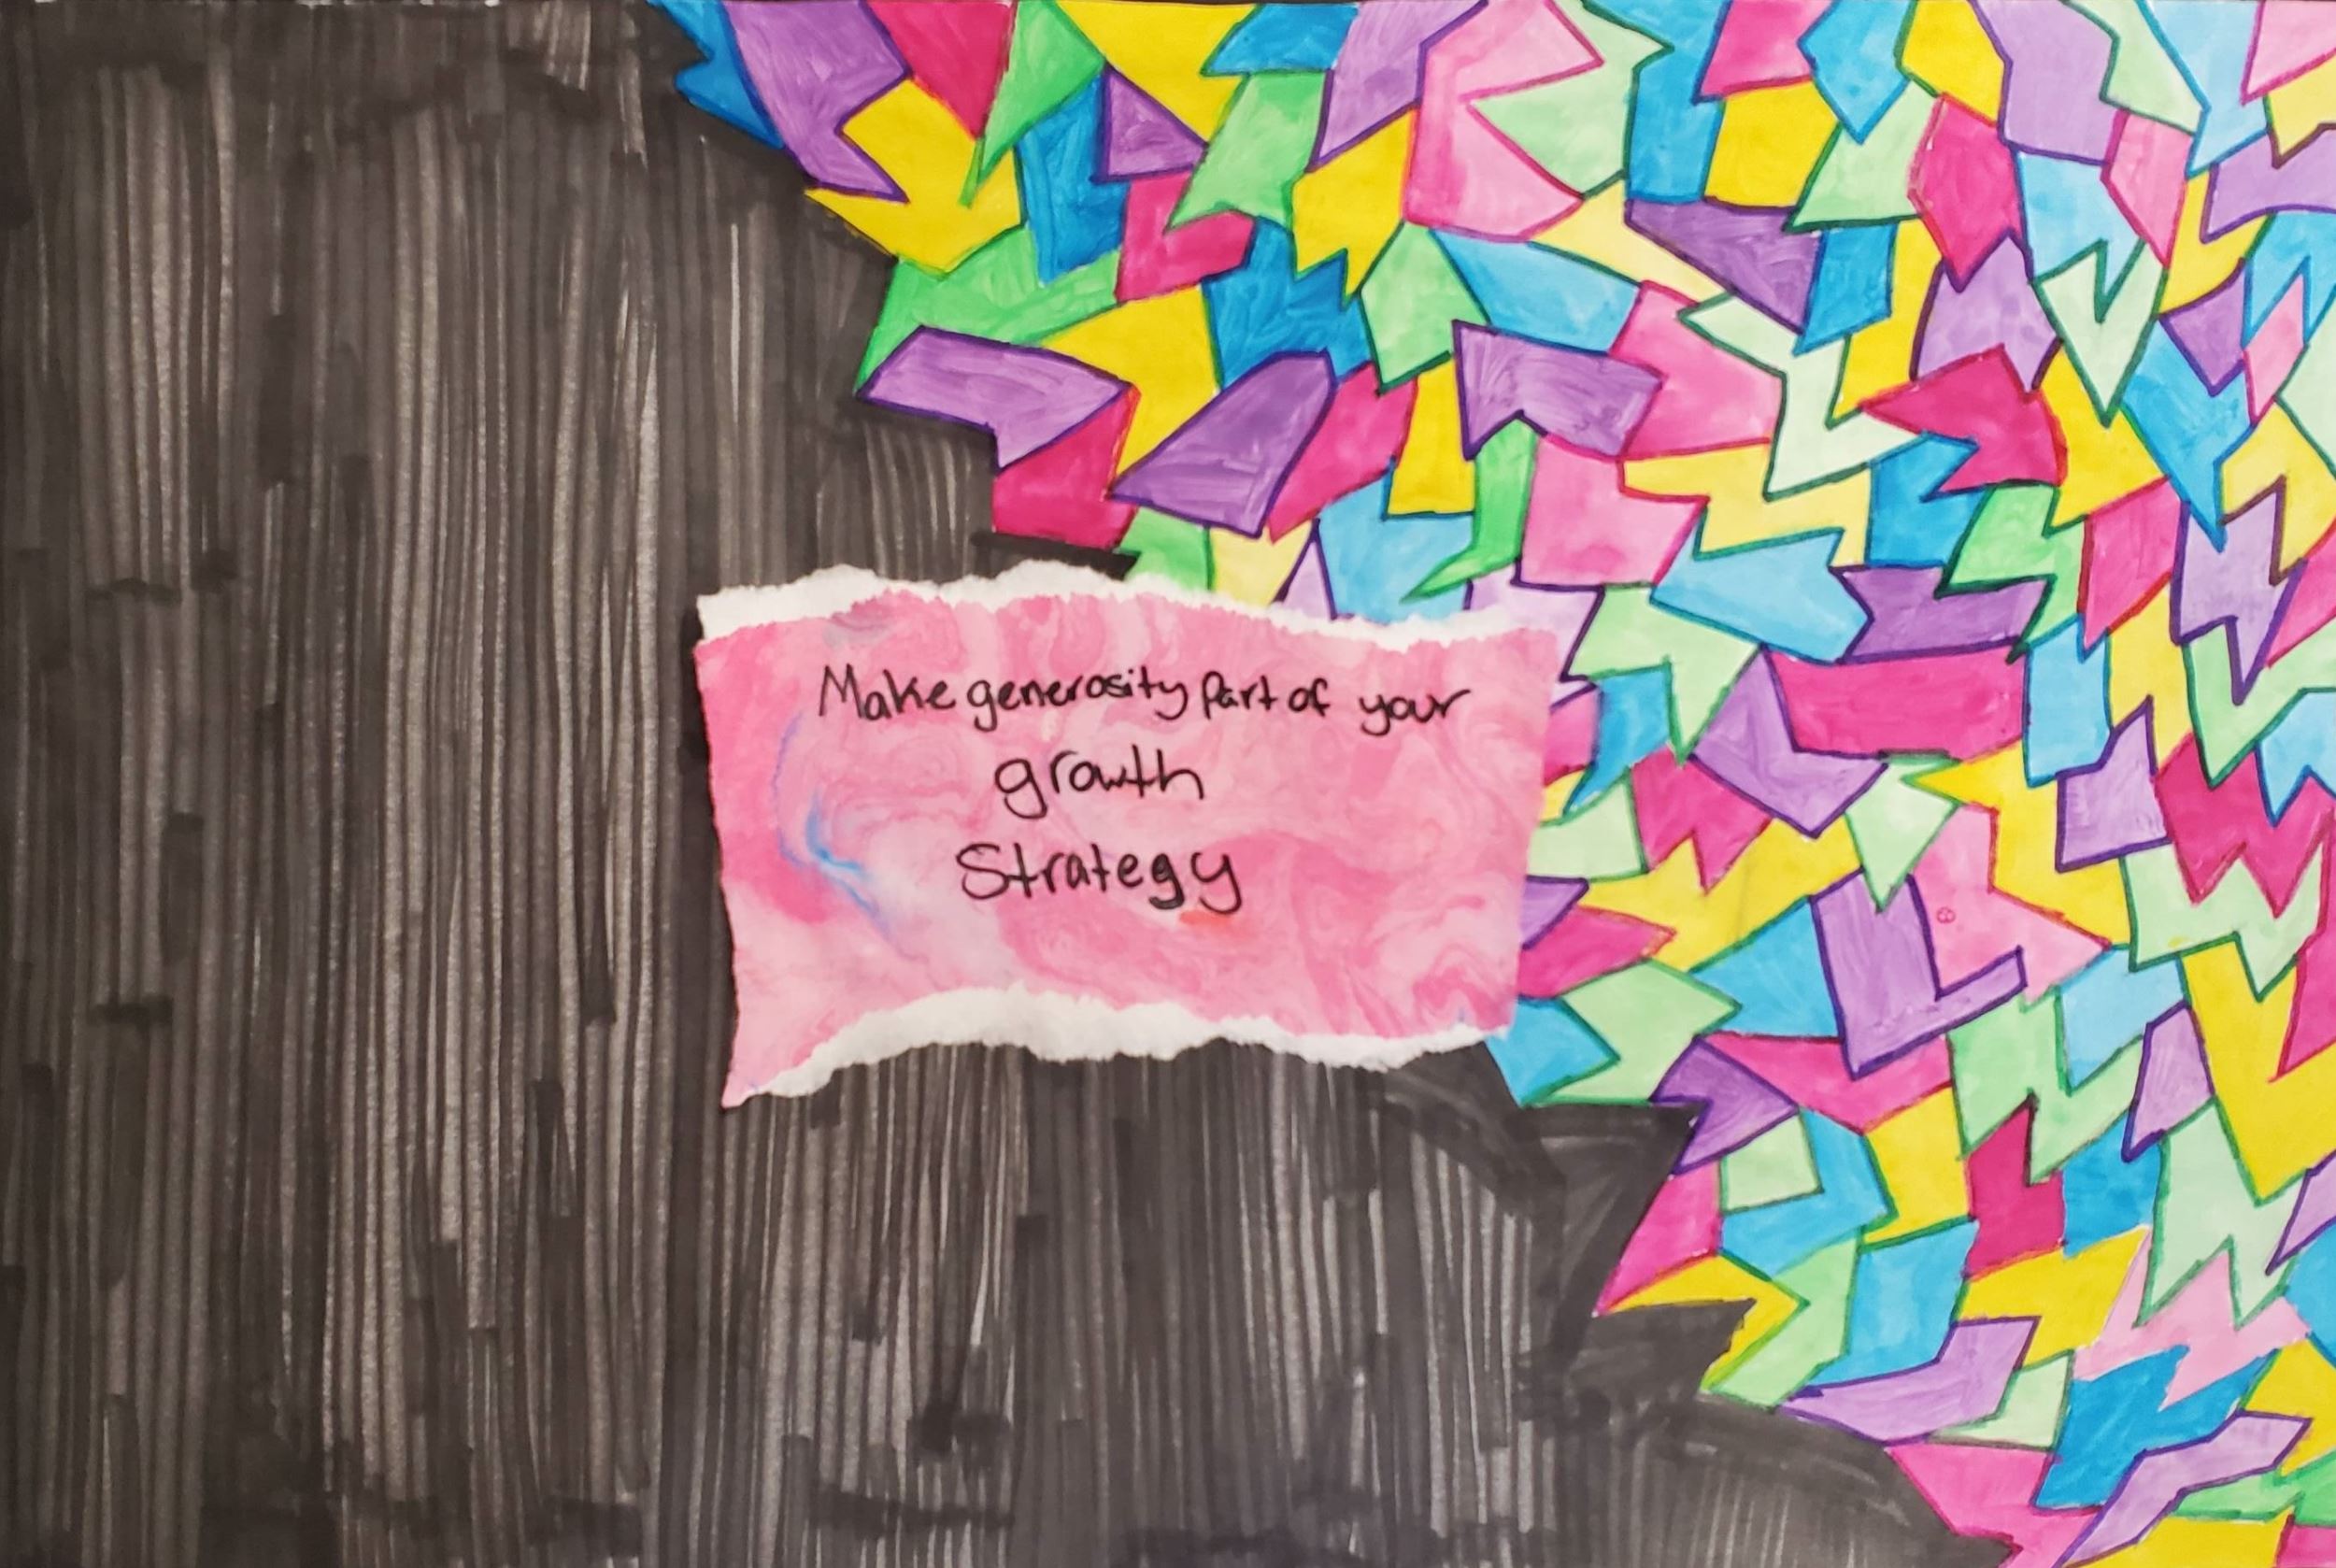 Make generosity part of your
growth
Strategy